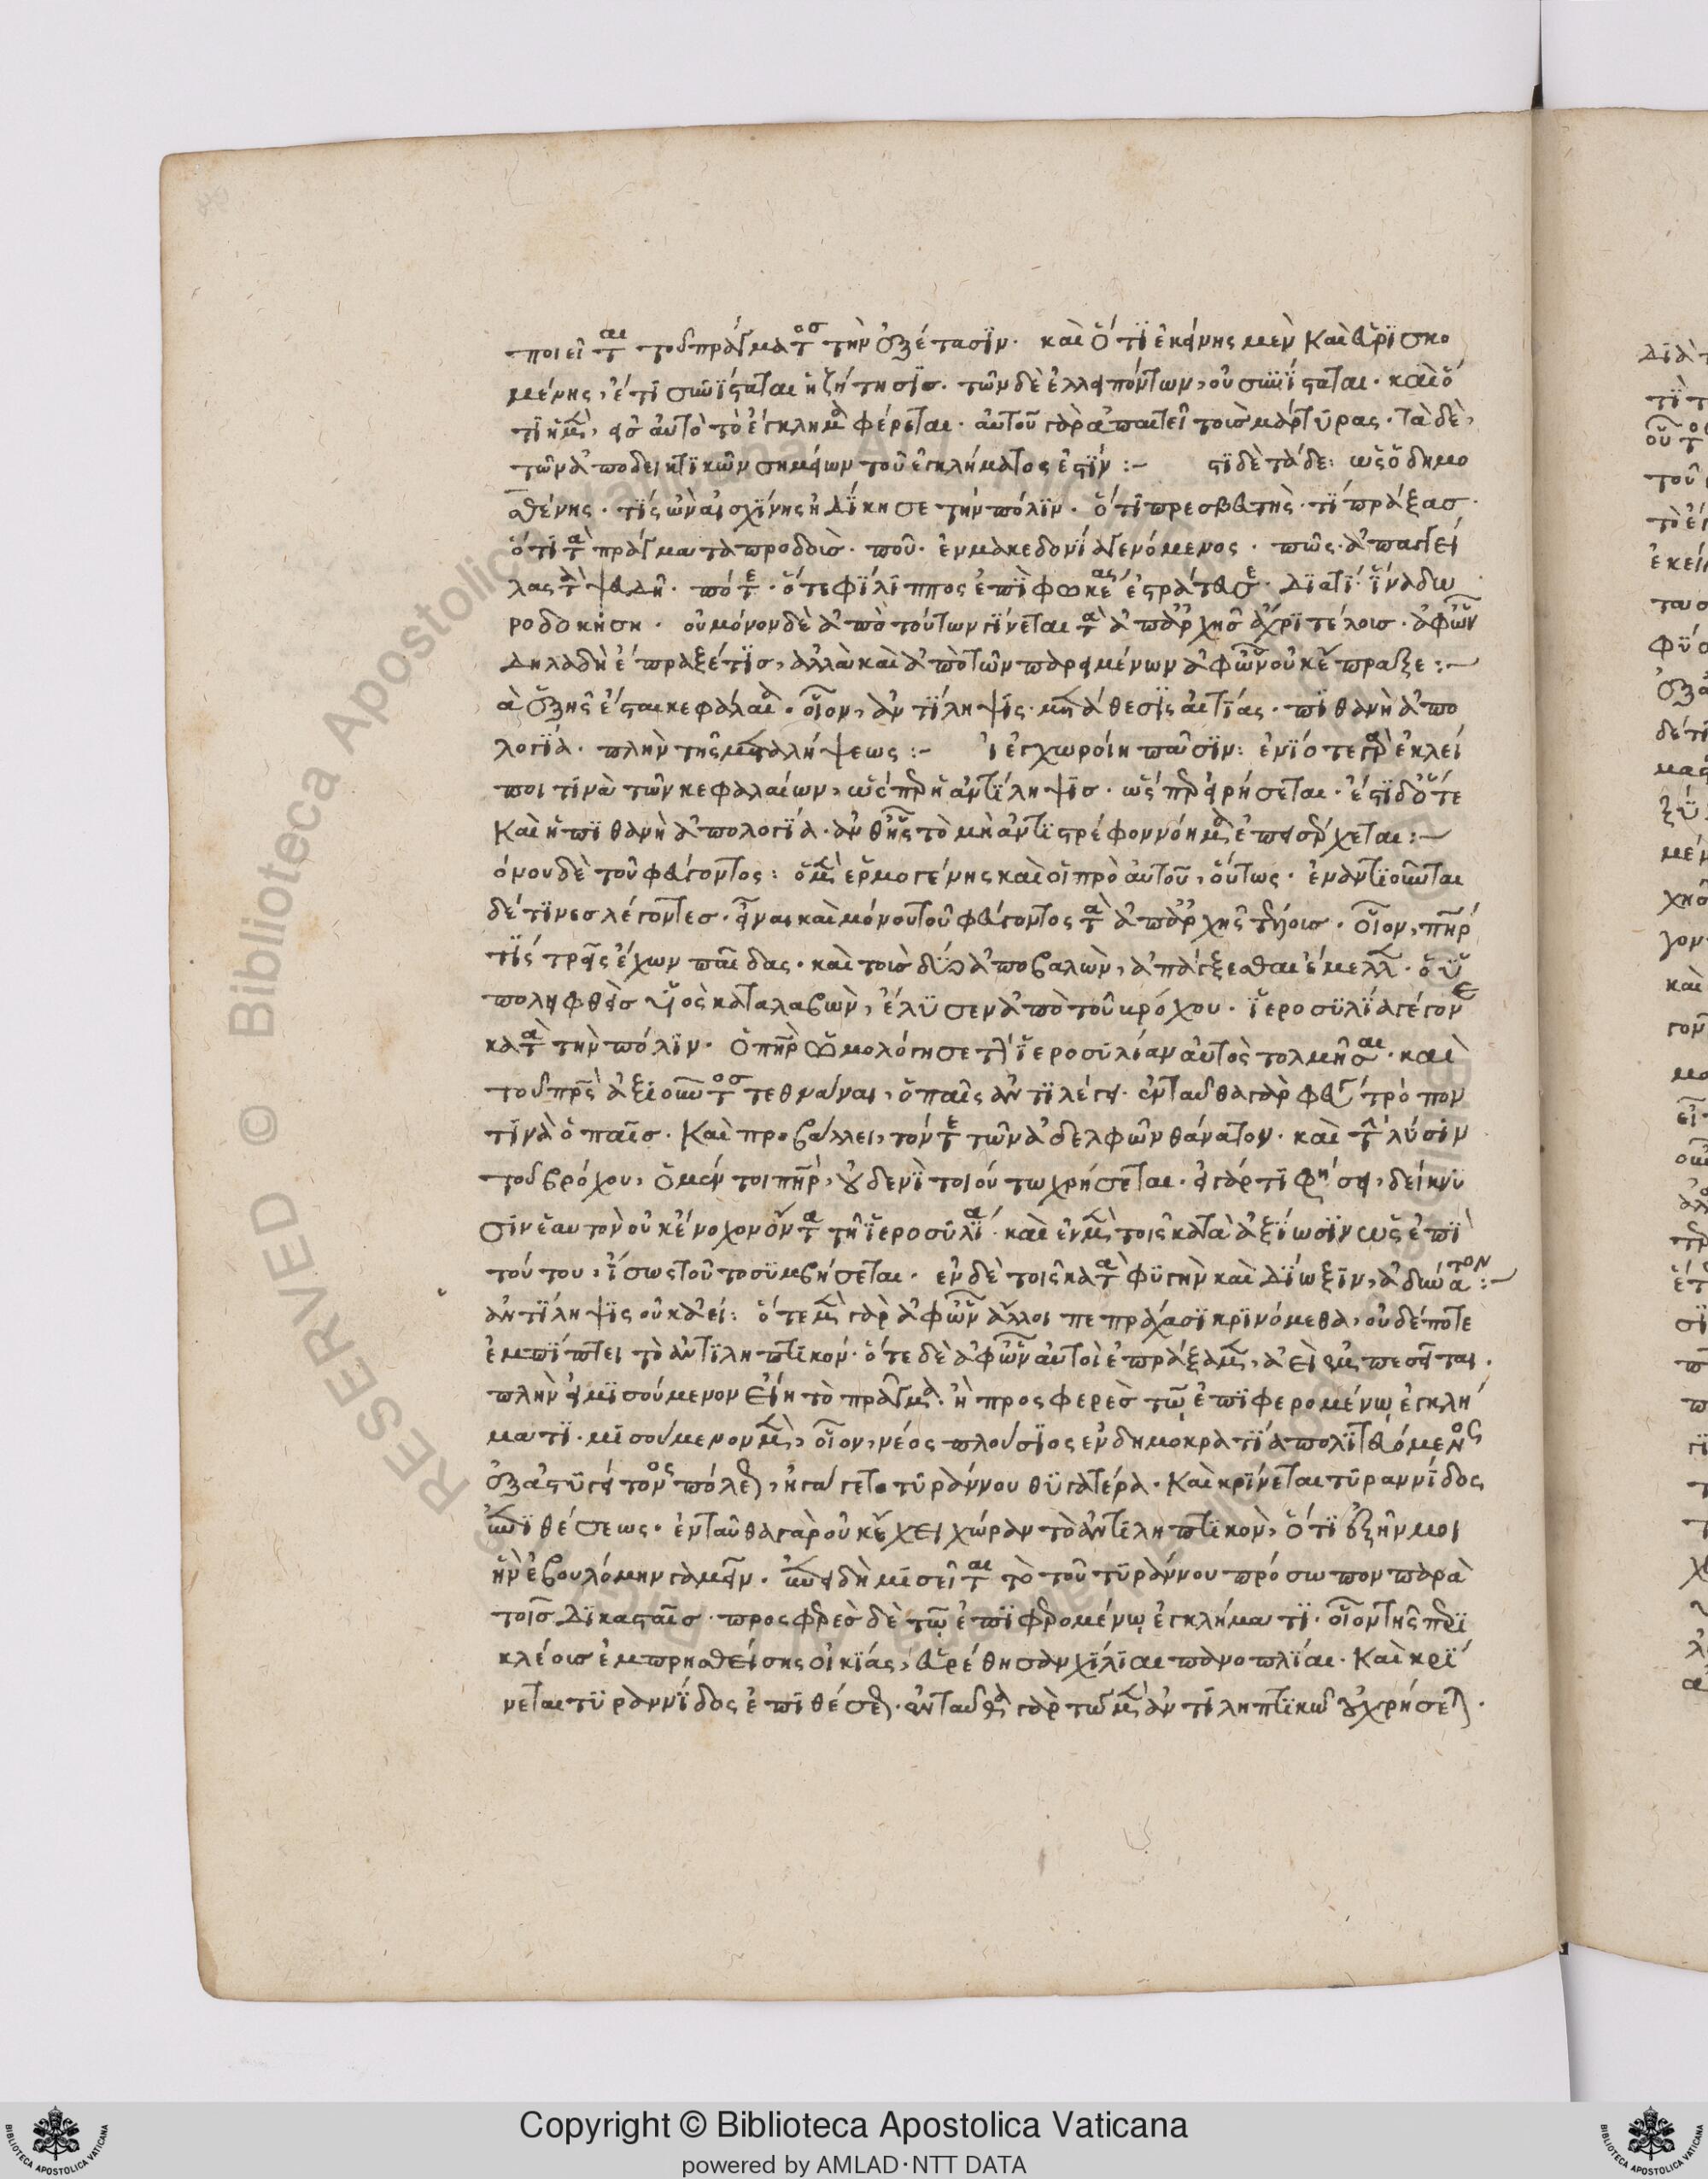 ποιεῖται τοῦ πράγματος τὴν ἐξέτασϊν· καὶ ὅτϊ ἐκείνης μὲν καὶ εὑρϊσκο
μένης, ἔτϊ συνΐσταται ἡ ζήτησϊς· τῶν δὲ ἐλλειπόντων, οὐ συνΐσταται· καὶ ὅ
τϊ ἡ μὲν, εἰς αὐτὸ τὸ ἔγκλημα φέρεται· αὐτοῦ γὰρ ἀπαιτεῖ τοὺς μάρτϋρας· τὰ δὲ,
τῶν ἀποδεικτϊκῶν σημείων τοῦ ἐγκλήματος ἐστϊν:~ στϊ δὲ τάδε: ὡς ὁ δημο
σθένης· τίς ὢν αἰσχίνης ἠδΐκησε τὴν πόλϊν· ὅτϊ πρεσβευτὴς· τΐ πράξας·
ὅτϊ τὰ πράγματα προδοὺς· ποῦ· ἐν μακεδονΐα γενόμενος· πῶς· ἀπαγγεί
λας τὰ ψευδῆ· πότε· ὅτε φΐλϊππος ἐπϊ φωκέας ἐστράτευσε· δϊατΐ· ἵνα δω
ροδοκήσῃ· οὐ μόνον δὲ ἀπὸ τούτων γίνεται τὰ ἀπαρχῆς ἄχρϊ τέλους· ἀφ' ὧν
δηλαδὴ ἔπραξέ τϊς, ἀλλὰ καὶ ἀπὸ τῶν παρειμένων ἀφ' ὧν οὐκ ἔπραξε:~
ὰ ἑξῆς ἔσται κεφάλαια· οἷον, ἀντΐληψϊς· μετάθεσϊς αἰτΐας· πϊθανὴ ἀπο
λογΐα· πλὴν τῆς μεταλήψεως:~ ἰ ἐγχωροίη πᾶσϊν: ἐνϊότε γὰρ ἐκλεί
ποι τϊνὰ τῶν κεφαλαίων, ὥσπερ ἡ ἀντΐληψϊς· ὥσπερ εἰρήσεται· ἔστϊ δ' ὅτε
καὶ ἡ πϊθανὴ ἀπολογΐα· ἀνθ' ἧς τὸ μὴ ἀντϊστρέφον νόημα ἐπεισέρχεται:~
όνου δὲ τοῦ φεύγοντος: ὁ μὲν ἑρμογένης καὶ οἱ πρὸ αὐτοῦ, οὕτως· ἐναντϊοῦνται
δέ τϊνες λέγοντες· εἶναι καὶ μόνου τοῦ φεύγοντος τὰ ἀπαρχῆς τέλους· οἷον, πατήρ
τϊς τρεῖς ἔχων παῖδας· καὶ τοὺς δύο ἀποβαλὼν, ἀπάγξεσθαι ἔμελλε· ὁ ὑ
πολειφθεὶς υἱὸς καταλαβὼν, ἔλϋσεν ἀπὸ τοῦ βρόχου· ἱεροσϋλΐα γέγονε
κατὰ τὴν πόλϊν· ὁ πατὴρ ὡμολόγησε τὴν ἱεροσϋλίαν αὐτὸς τολμῆσαι· καὶ
τοῦ πατρὸς ἀξϊοῦντος τεθνάναι, ὁ παῖς ἀντϊλέγει· ἐνταῦθα γὰρ φεύγει τρόπον
τϊνὰ ὁ παῖς· καὶ προβάλλει, τόν τε τῶν ἀδελφῶν θάνατον· καὶ τὴν λύσϊν
τοῦ βρόχου, ὁ μέν τοι πατὴρ, οὐδενΐ τοιούτω χρήσεται· εἰ γάρ τϊ φήσει, δείκνϋ
σϊν ἑαυτὸν οὐκ ἔνοχον ὄντα τῇ ἱεροσϋλΐα· καὶ ἐν μὲν τοῖς κατὰ ἀξΐωσϊν ὡς ἐπΐ
τούτου, ἴσως τοῦτο σϋμβήσεται· ἐν δὲ τοῖς κατὰ φϋγὴν καὶ δΐωξϊν, ἀδύνατον:~
ἀντΐληψϊς οὐκ ἀεί: ὅτε μὲν γὰρ ἀφ' ὧν ἄλλοι πεπράχασϊ κρϊνόμεθα, οὐδέποτε
ἐμπΐπτει τὸ ἀντϊληπτϊκόν· ὅτε δὲ ἀφ' ὧν αὐτοὶ ἐπράξαμεν, ἀεὶ ἐμπεσεῖται·
πλὴν εἰ μϊσούμενον εἴη τὸ πρᾶγμα· ἢ προσφερὲς τῷ ἐπϊφερομένῳ ἐγκλή
ματϊ· μϊσούμενον μὲν, οἷον, νέος πλούσϊος ἐν δημοκρατΐα πολϊτευόμενος
ἐξ ἀστϋγείτονος πόλεως, ἠγάγετο τϋράννου θϋγατέρα· καὶ κρΐνεται τϋραννΐδος
ἐπϊθέσεως· ἐνταῦθα γὰρ οὐκ ἔχει χώραν τὸ ἀντϊληπτϊκὸν, ὅτϊ ἐξῆν μοι
ἣν ἐβουλόμην γαμεῖν· ἐπειδὴ μϊσεῖται τὸ τοῦ τϋράννου πρόσωπον παρὰ
τοῖς δϊκασταῖς· προσφερὲς δὲ τῷ ἐπϊφερομένῳ ἐγκλήματϊ· οἷον τῆς περϊ
κλέους ἐμπρησθείσης οἰκΐας, εὑρέθησαν χΐλϊαι πανοπλΐαι· καὶ κρΐ
νεται τϋραννΐδος ἐπϊθέσεως· ἐνταῦθα γὰρ τῶ μὲν ἀντϊληπτϊκῶ οὐ χρήσεται·
Copyright © Biblioteca Apostolica Vaticana
powered by AMLAD·NTT DATA